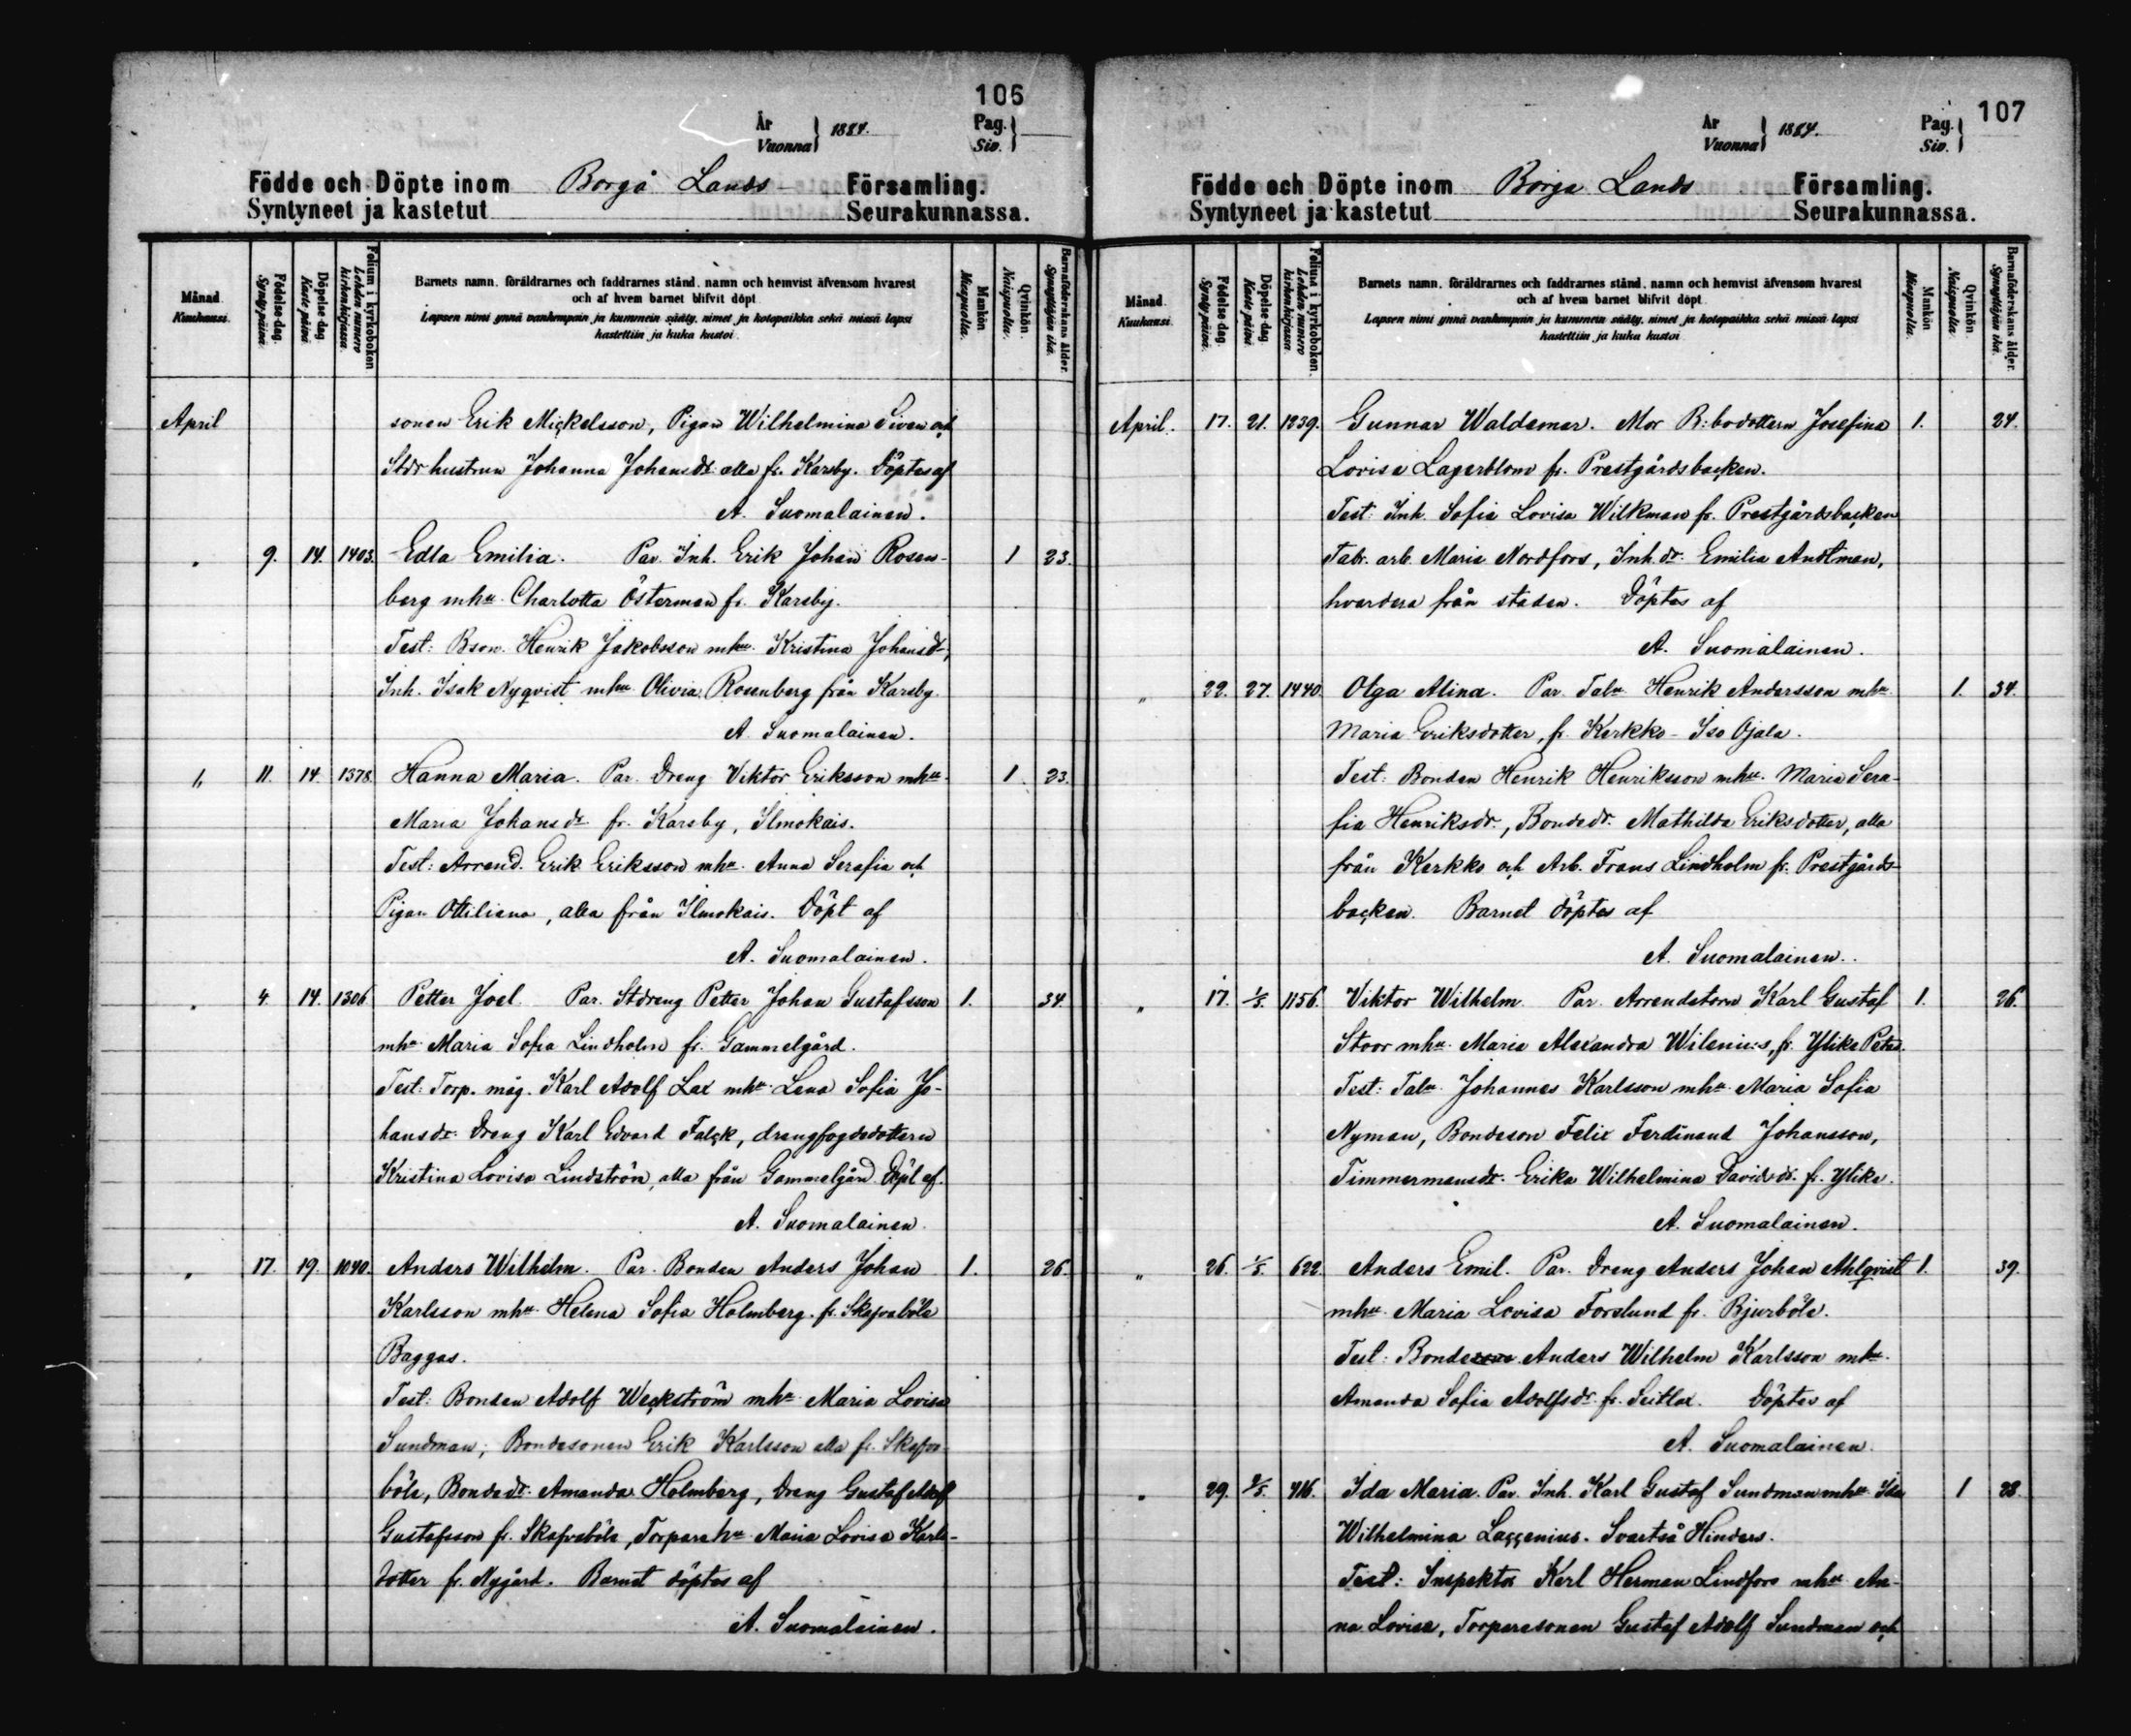 106
År
Vuonna } 1884.
Pag.
Siv. }
Födde och Döpte inom Borgå Lands Församling.
Syntyneet ja kastetut Seurakunnassa.
Månad.
Kuukausi.
Födelse-dag.
Synty-päivä.
Döpelse-dag.
Kaste-päivä.
Folium i kyrkoboken.
Lehden numero kirkonkirjassa.
Barnets namn, föräldrarnes och faddrarnes stånd, namn och hemvist äfvensom hvarest
och af hvem barnet blifvit döpt.
Lapsen nimi ynnä vanhempain ja kummein sääty, nimet ja kotopaikka sekä missä lapsi
kastettiin ja kuka kastoi.
Mankön.
Miespuolia.
Qvinkön.
Naispuolia.
Barnaföderskans ålder.
Synnyttäjän ikä.
April sonen Erik Mickelsson, Pigan Wilhelmina Siven och
Stdr hustrun Johanna Johansdr alla fr. Karsby. Döptes af
A. Suomalainen.
9. 14. 1403. Edla Emilia. Par. Inh. Erik Johan Rosen- 1 23.
berg mhu Charlotta Österman fr. Karsby.
Test: Bson. Henrik Jakobsson mhu. Kristina Johansdr,
Inh. Isak Nyqvist mhu Olivia Rosenberg från Karsby.
A. Suomalainen.
" 11. 14. 1378. Hanna Maria. Par. Dreng Viktor Eriksson mhu 1 23.
Maria Johansdr fr. Karsby, Ilmokais.
Test: Arrend. Erik Eriksson mhu. Anna Serafia och
Pigan Ottiliana, alla från Ilmokais. Döpt af
A. Suomalainen.
" 4. 14. 1306. Petter Joel. Par. Stdreng Petter Johan Gustafsson 1. 34.
mhu Maria Sofia Lindholm fr. Gammelgård.
Test: Torp. måg. Karl Adolf Lax mhu Lena Sofia Jo-
hansdr. Dreng Karl Edvard Falck, drengfogdedottern
Kristina Lovisa Lindström, alla från Gammelgård. Döpt af.
A. Suomalainen.
" 17. 19. 1040. Anders Wilhelm. Par. Bonden Anders Johan 1. 26.
Karlsson mhu Helena Sofia Holmberg. fr. Skafvaböle
Baggas.
Test: Bonden Adolf Weckström mhu Maria Lovisa
Sundman, Bondesonen Erik Karlsson alla fr. Skafva-
böle, Bondedr. Amanda Holmberg, Dreng Gustaf Adolf
Gustafsson fr. Skafvaböle, Torparehu Maria Lovisa Karls-
dotter fr. Nygård. Barnet döptes af
A. Suomalainen.
107
År
Vuonna } 1884.
Pag.
Siv. }
Födde och Döpte inom Borgå Lands Församling.
Syntyneet ja kastetut Seurakunnassa.
Månad.
Kuukausi.
Födelse-dag.
Synty-päivä.
Döpelse-dag.
Kaste-päivä.
Folium i kyrkoboken.
Lehden numero kirkonkirjassa.
Barnets namn, föräldrarnes och faddrarnes stånd, namn och hemvist äfvensom hvarest
och af hvem barnet blifvit döpt.
Lapsen nimi ynnä vanhempain ja kummein sääty, nimet ja kotopaikka sekä missä lapsi
kastettiin ja kuka kastoi.
Mankön.
Miespuolia.
Qvinkön.
Naispuolia.
Barnaföderskans ålder.
Synnyttäjän ikä.
April. 17. 21. 1239. Gunnar Waldemar. Mor B:bodottern Josefina 1. 24.
Lovisa Lagerblom fr. Prestgårdsbacken.
Test: Inh. Sofia Lovisa Wilkman fr. Prestgårdsbacken
Fabr. arb. Maria Nordfors, Inh. dr. Emilia Audtman,
hvardera från staden. Döptes af
A. Suomalainen.
" 22. 27. 1440. Olga Alina. Par. Talu Henrik Andersson mhu 1. 34.
Maria Eriksdotter, fr. Kerkko - Iso Ojala.
Test: Bonden Henrik Henriksson mhu. Maria Sera-
fia Henriksdr., Bondedr. Mathilda Eriksdotter, alla
från Kerkko och Arb. Frans Lindholm fr. Prestgårds-
backen. Barnet döptes af
A. Suomalainen.
" 17. 1/5. 1156. Viktor Wilhelm. Par. Arrendatorn Karl Gustaf 1. 26.
Stoor mhu. Maria Alexandra Wilenius, fr. Ylike Petas.
Test: Talu Johannes Karlsson mhu Maria Sofia
Nyman, Bondeson Felix Ferdinand Johansson,
Timmermansdr. Erika Wilhelmina Davidsdr. fr. Ylike.
A. Suomalainen.
" 26. 1/5. 622. Anders Emil. Par. Dreng Anders Johan Ahlqvist 1. 39.
mhu Maria Lovisa Forslund fr. Bjurböle.
Test: Bonde Anders Wilhelm Karlsson mhu
Amanda Sofia Adolfsdr. fr. Seitlax. Döptes af
A. Suomalainen.
" 29. 2/5. 716. Ida Maria. Par. Inh. Karl Gustaf Sundman mhu Ida 1 28.
Wilhelmina Laggenius. Svartså Hinders.
Test: Inspektor Karl Herman Lindfors mhu An-
na Lovisa, Torparesonen Gustaf Adolf Sundman och